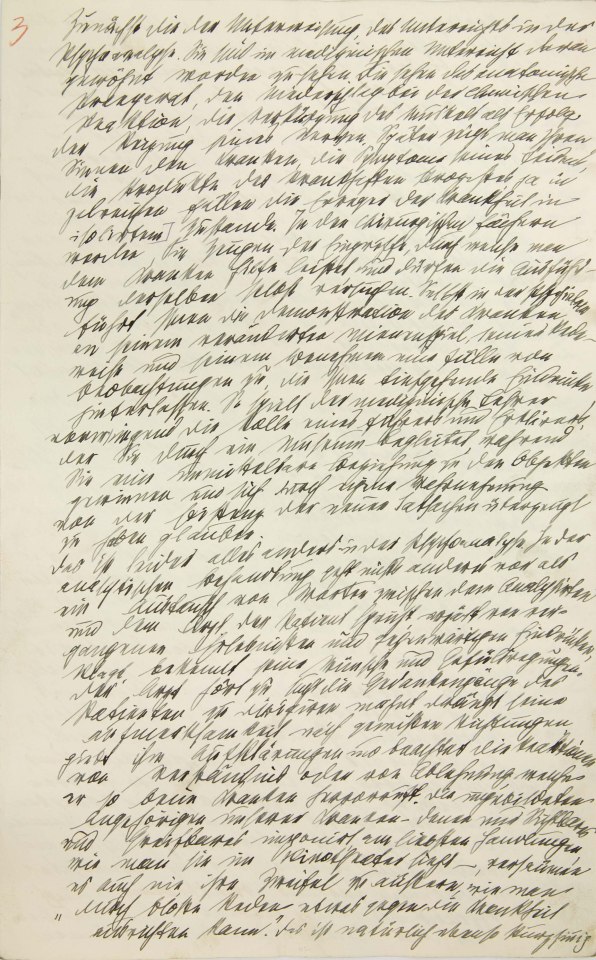 3
Zunächst die der Unterweisung, des Unterrichts in der
Psychoanalyse. Sie sind im medizinischen Unterricht daran
gewöhnt worden zu sehen. Sie sehen das anatomische
Präparat, den Niederschlag bei der chemischen
Reaktion, die Verkürzung des Muskels als Erfolg
der Reizung seiner Nerven. Später zeigt man Ihren
Sinnen den Kranken, die Symptome seines Leidens,
die Produkte des krankhaften Prozesses, ja in
zahlreichen Fällen die Erreger der Krankheit in
isolirtem Zustande. In den chirurgischen Fächern
werden Sie Zeugen der Eingriffe, durch welche man
dem Kranken Hilfe leistet und dürfen die Ausführ-
ung derselben selbst versuchen. Selbst in der Psychiatrie
führt Ihnen die Demonstration des Kranken
an seinem veränderten Mienenspiel, seiner Rede-
weise und seinem Benehmen eine Fülle von
Beobachtungen zu, die Ihnen tiefgehende Eindrücke
hinterlassen. So spielt der medizinische Lehrer
vorwiegend die Rolle eines Führers und Erklärers,
der Sie durch ein Museum begleitet, während
Sie eine unmittelbare Beziehung zu den Objekten
gewinnen und sich durch eigene Wahrnehmung
von der Existenz der neuen Tatsachen überzeugt
zu haben glauben.
Das ist leider alles anders in der Psychoanalyse. In der
analytischen Behandlung geht nichts anderes vor als
ein Austausch von Worten zwischen dem Analysirten
und dem Arzt. Der Patient spricht, erzählt von ver-
gangenen Erlebnissen und gegenwärtigen Eindrücken,
klagt, bekennt seine Wünsche und Gefühlsregungen.
Der Arzt hört zu, sucht die Gedankengänge des
Patienten zu dirigiren, mahnt, drängt seine
Aufmerksamkeit nach gewissen Richtungen,
giebt ihm Aufklärungen und beachtet die Reaktionen
von Verständnis oder von Ablehnung, welche
er so beim Kranken hervorruft. Die ungebildeten
Angehörigen unserer Kranken – denen nur Sichtbares
und Greifbares imponirt, am liebsten Handlungen
wie man sie im Kinotheater sieht –, versäumen
es auch nie ihre Zweifel zu äußern, wie man
„durch bloße Reden etwas gegen die Krankheit
ausrichten kann." Das ist natürlich ebenso kurzsinnig